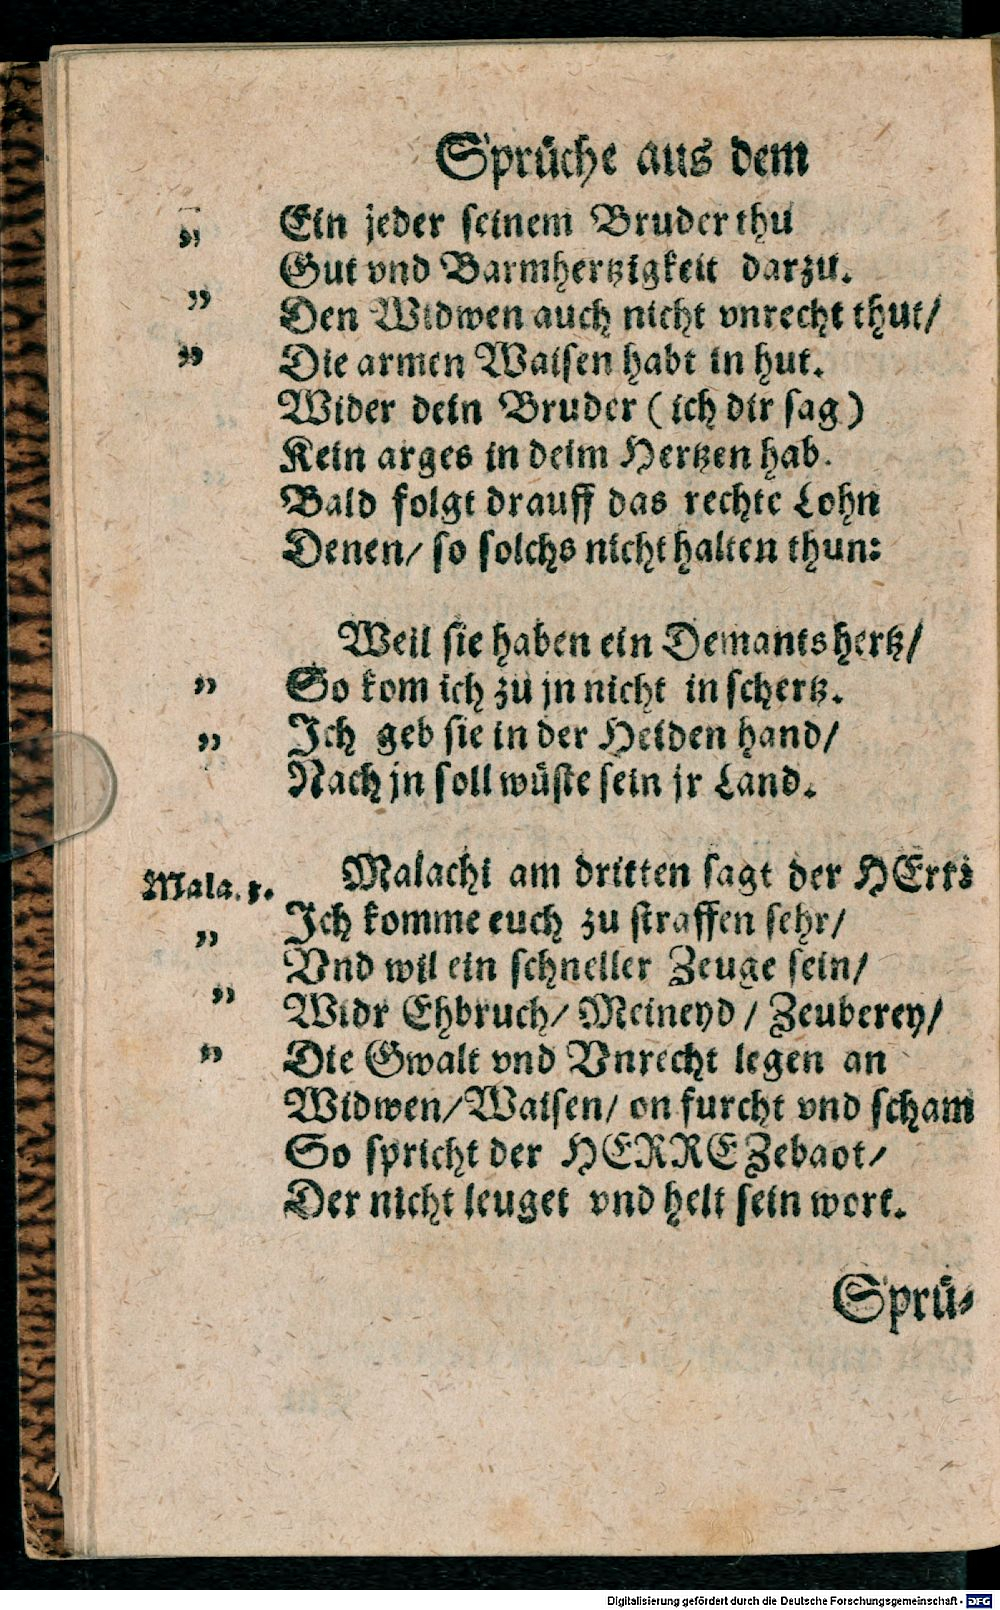 Sprüche aus dem
" Ein jeder seinem Bruder thu
Gut vnd Barmhertzigkeit darzu.
" Den Widwen auch nicht vnrecht thut/
" Die armen Waisen habt in hut.
Wider dein Bruder (ich dir sag)
Kein arges in deim Hertzen hab.
Bald folgt drauff das rechte Lohn
Denen/ so solchs nicht halten thun:
Weil sie haben ein Demants hertz/
" So kom ich zu jn nicht in schertz.
" Ich geb sie in der Heiden hand/
Nach jn soll wüste sein jr Land.
Mala. 3. Malachi am dritten sagt der HErr:
" Ich komme euch zu straffen sehr/
Vnd wil ein schneller Zeuge sein/
" Widr Ehbruch/ Meineyd / Zeuberey/
" Die Gwalt vnd Vnrecht legen an
Widwen/ Waisen/ on furcht vnd scham
So spricht der HERRE Zebaot/
Der nicht leuget vnd helt sein wort.
Sprü-
Digitalisierung gefördert durch die Deutsche Forschungsgemeinschaft - DFG